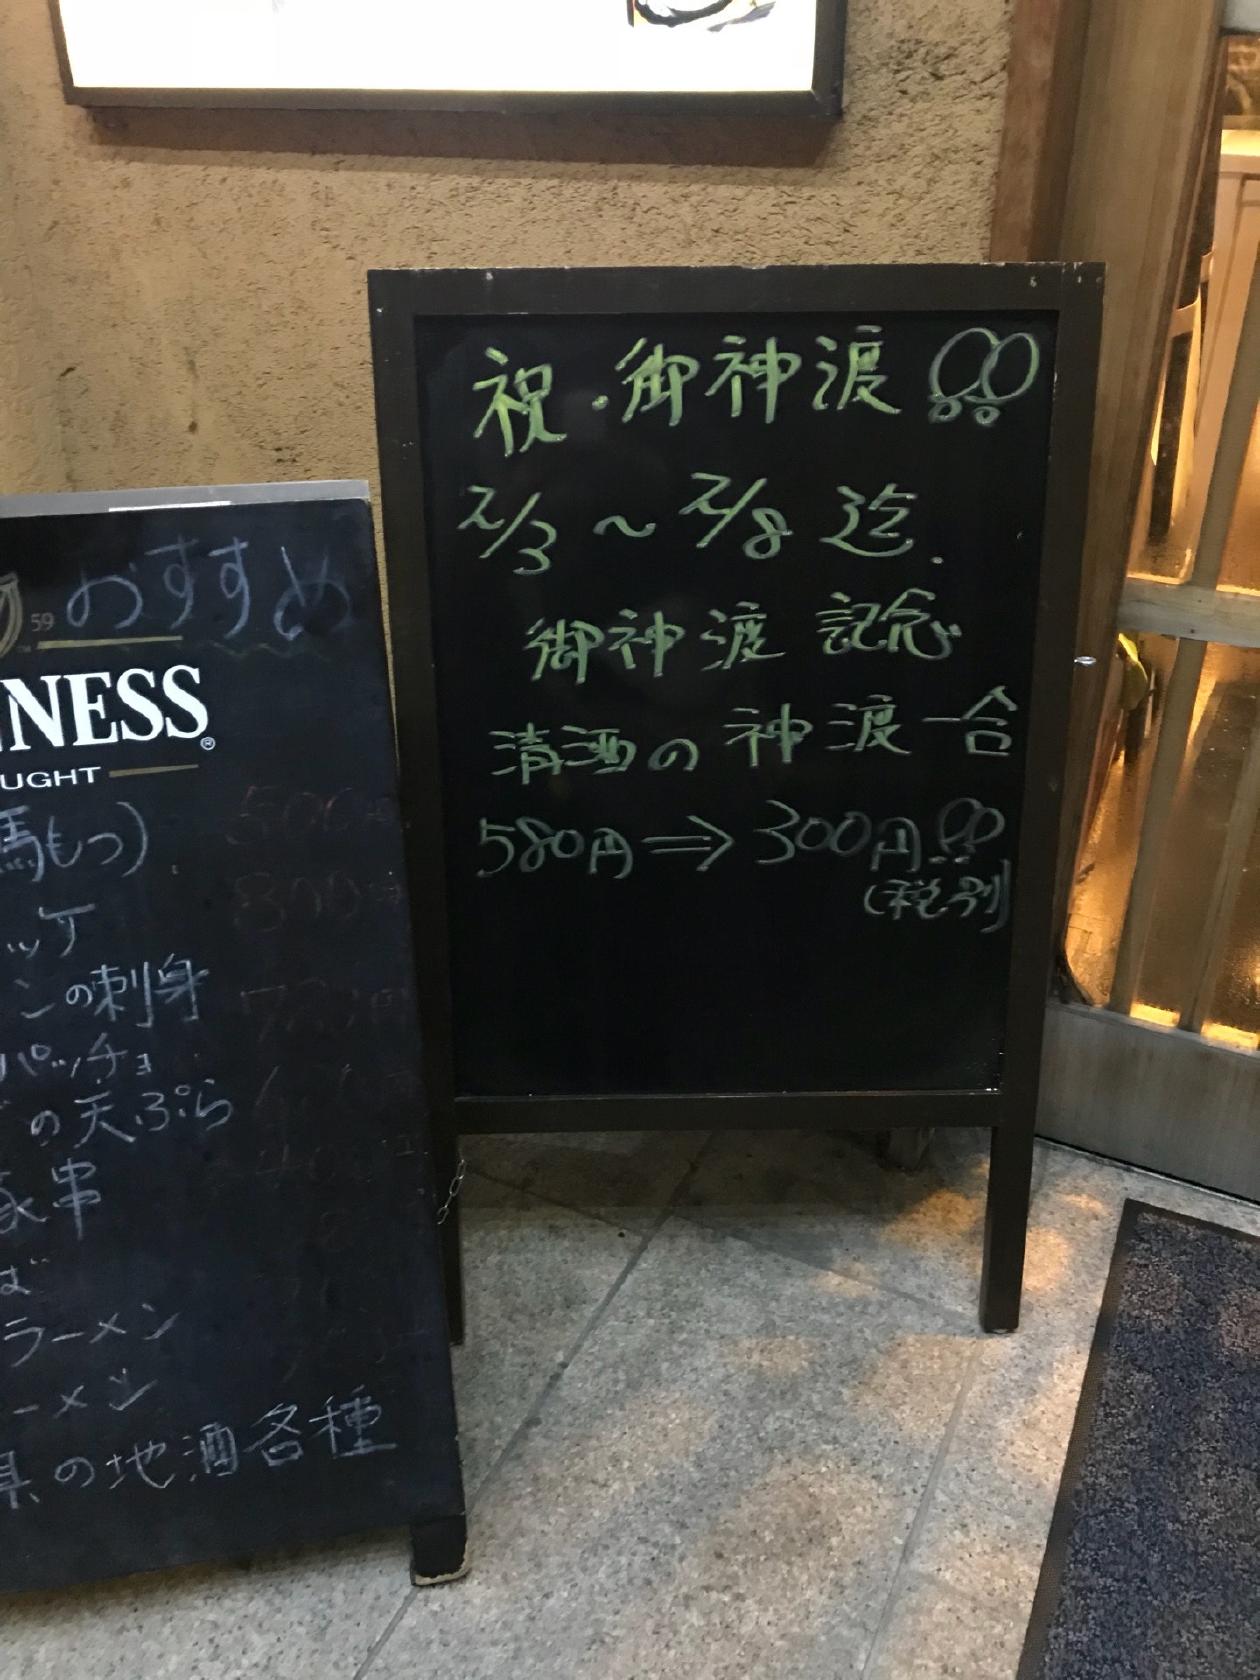 祝・御神渡!!
2/3〜2/8迄.
御神渡 記念
清酒の神渡一合
580円⇒300円!!
(税別)
59 おすすめ
NESS®
UGHT
馬もつ)
ッケ
ンの刺身
パッチョ
の天ぷら
串
ば
ラーメン
ーメン
県の地酒各種